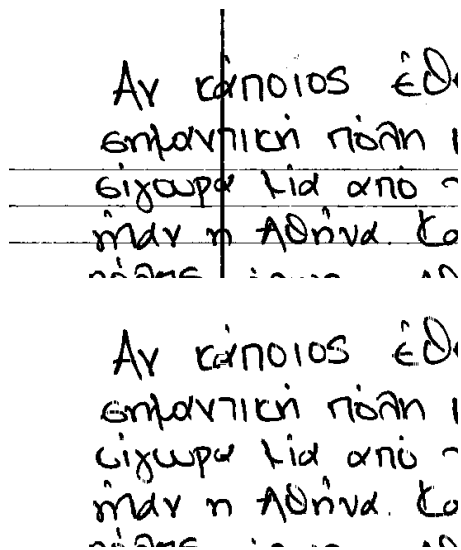 Αν κάποιος
σημαντική πόλη
σίγουρα μία από
ήταν η Αθήνα.
Αν κάποιος
σημαντική πόλη
σίγουρα μία από
ήταν η Αθήνα.